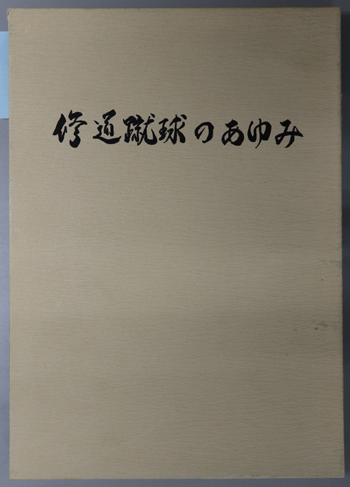 修道蹴球のあゆみ